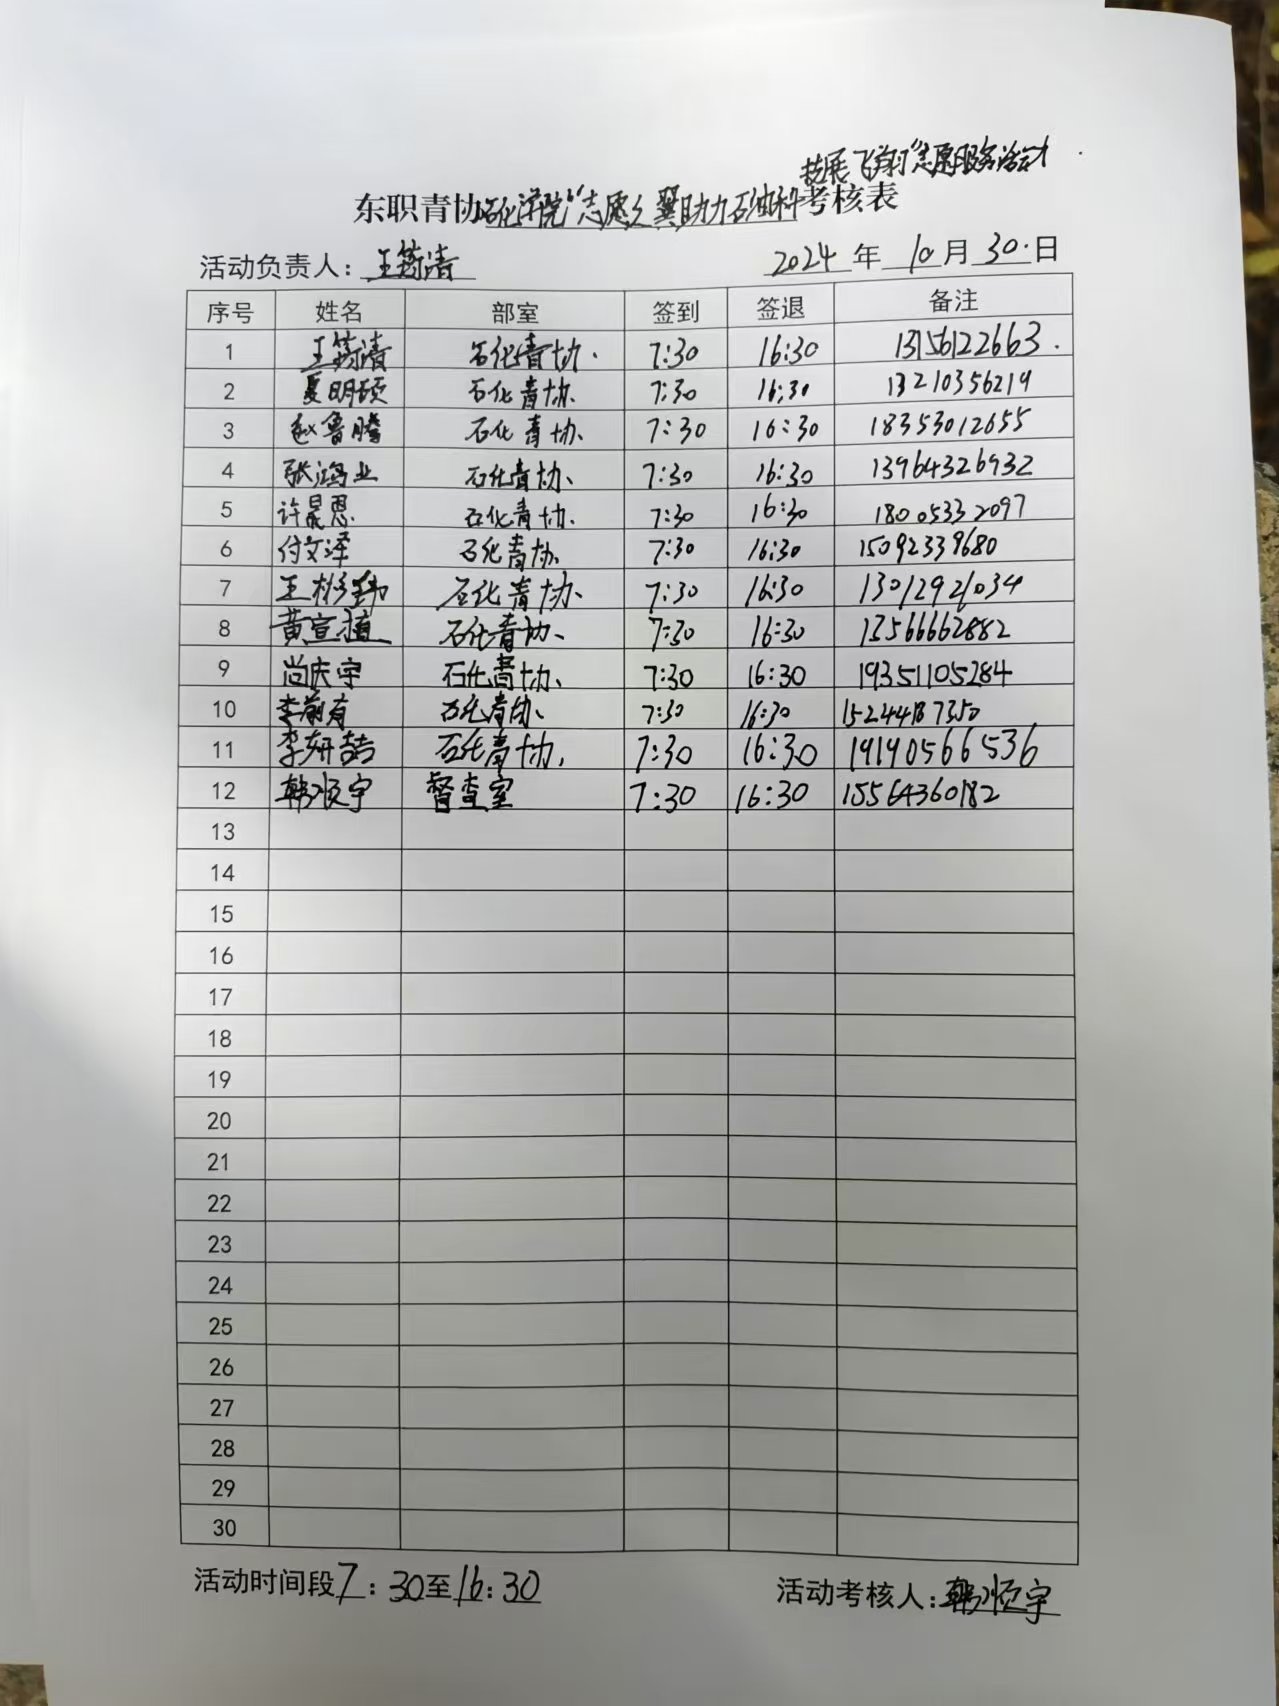 技展飞翔"志愿服务活动
东职青协石化学院"志愿之翼助力石油科考核表
活动负责人：王筠清 2024年10月30日
序号 姓名 部室 签到 签退 备注
1 王筠清 石化青协 7:30 16:30 13156122663
2 夏明硕 石化青协 7:30 16:30 13210356219
3 赵鲁腾 石化青协 7:30 16:30 18353012655
4 张鸿业 石化青协 7:30 16:30 13964326932
5 许晨思 石化青协 7:30 16:30 18005332097
6 付文泽 石化青协 7:30 16:30 15092339680
7 王彬 石化青协 7:30 16:30 13012921034
8 黄宣植 石化青协 7:30 16:30 13566662882
9 尚庆宇 石化青协 7:30 16:30 19351105284
10 李前有 石化青协 7:30 16:30 15224487350
11 李妍喆 石化青协 7:30 16:30 19190566536
12 韩顺宇 督查室 7:30 16:30 15564360182
13
14
15
16
17
18
19
20
21
22
23
24
25
26
27
28
29
30
活动时间段7：30至16：30 活动考核人：韩顺宇